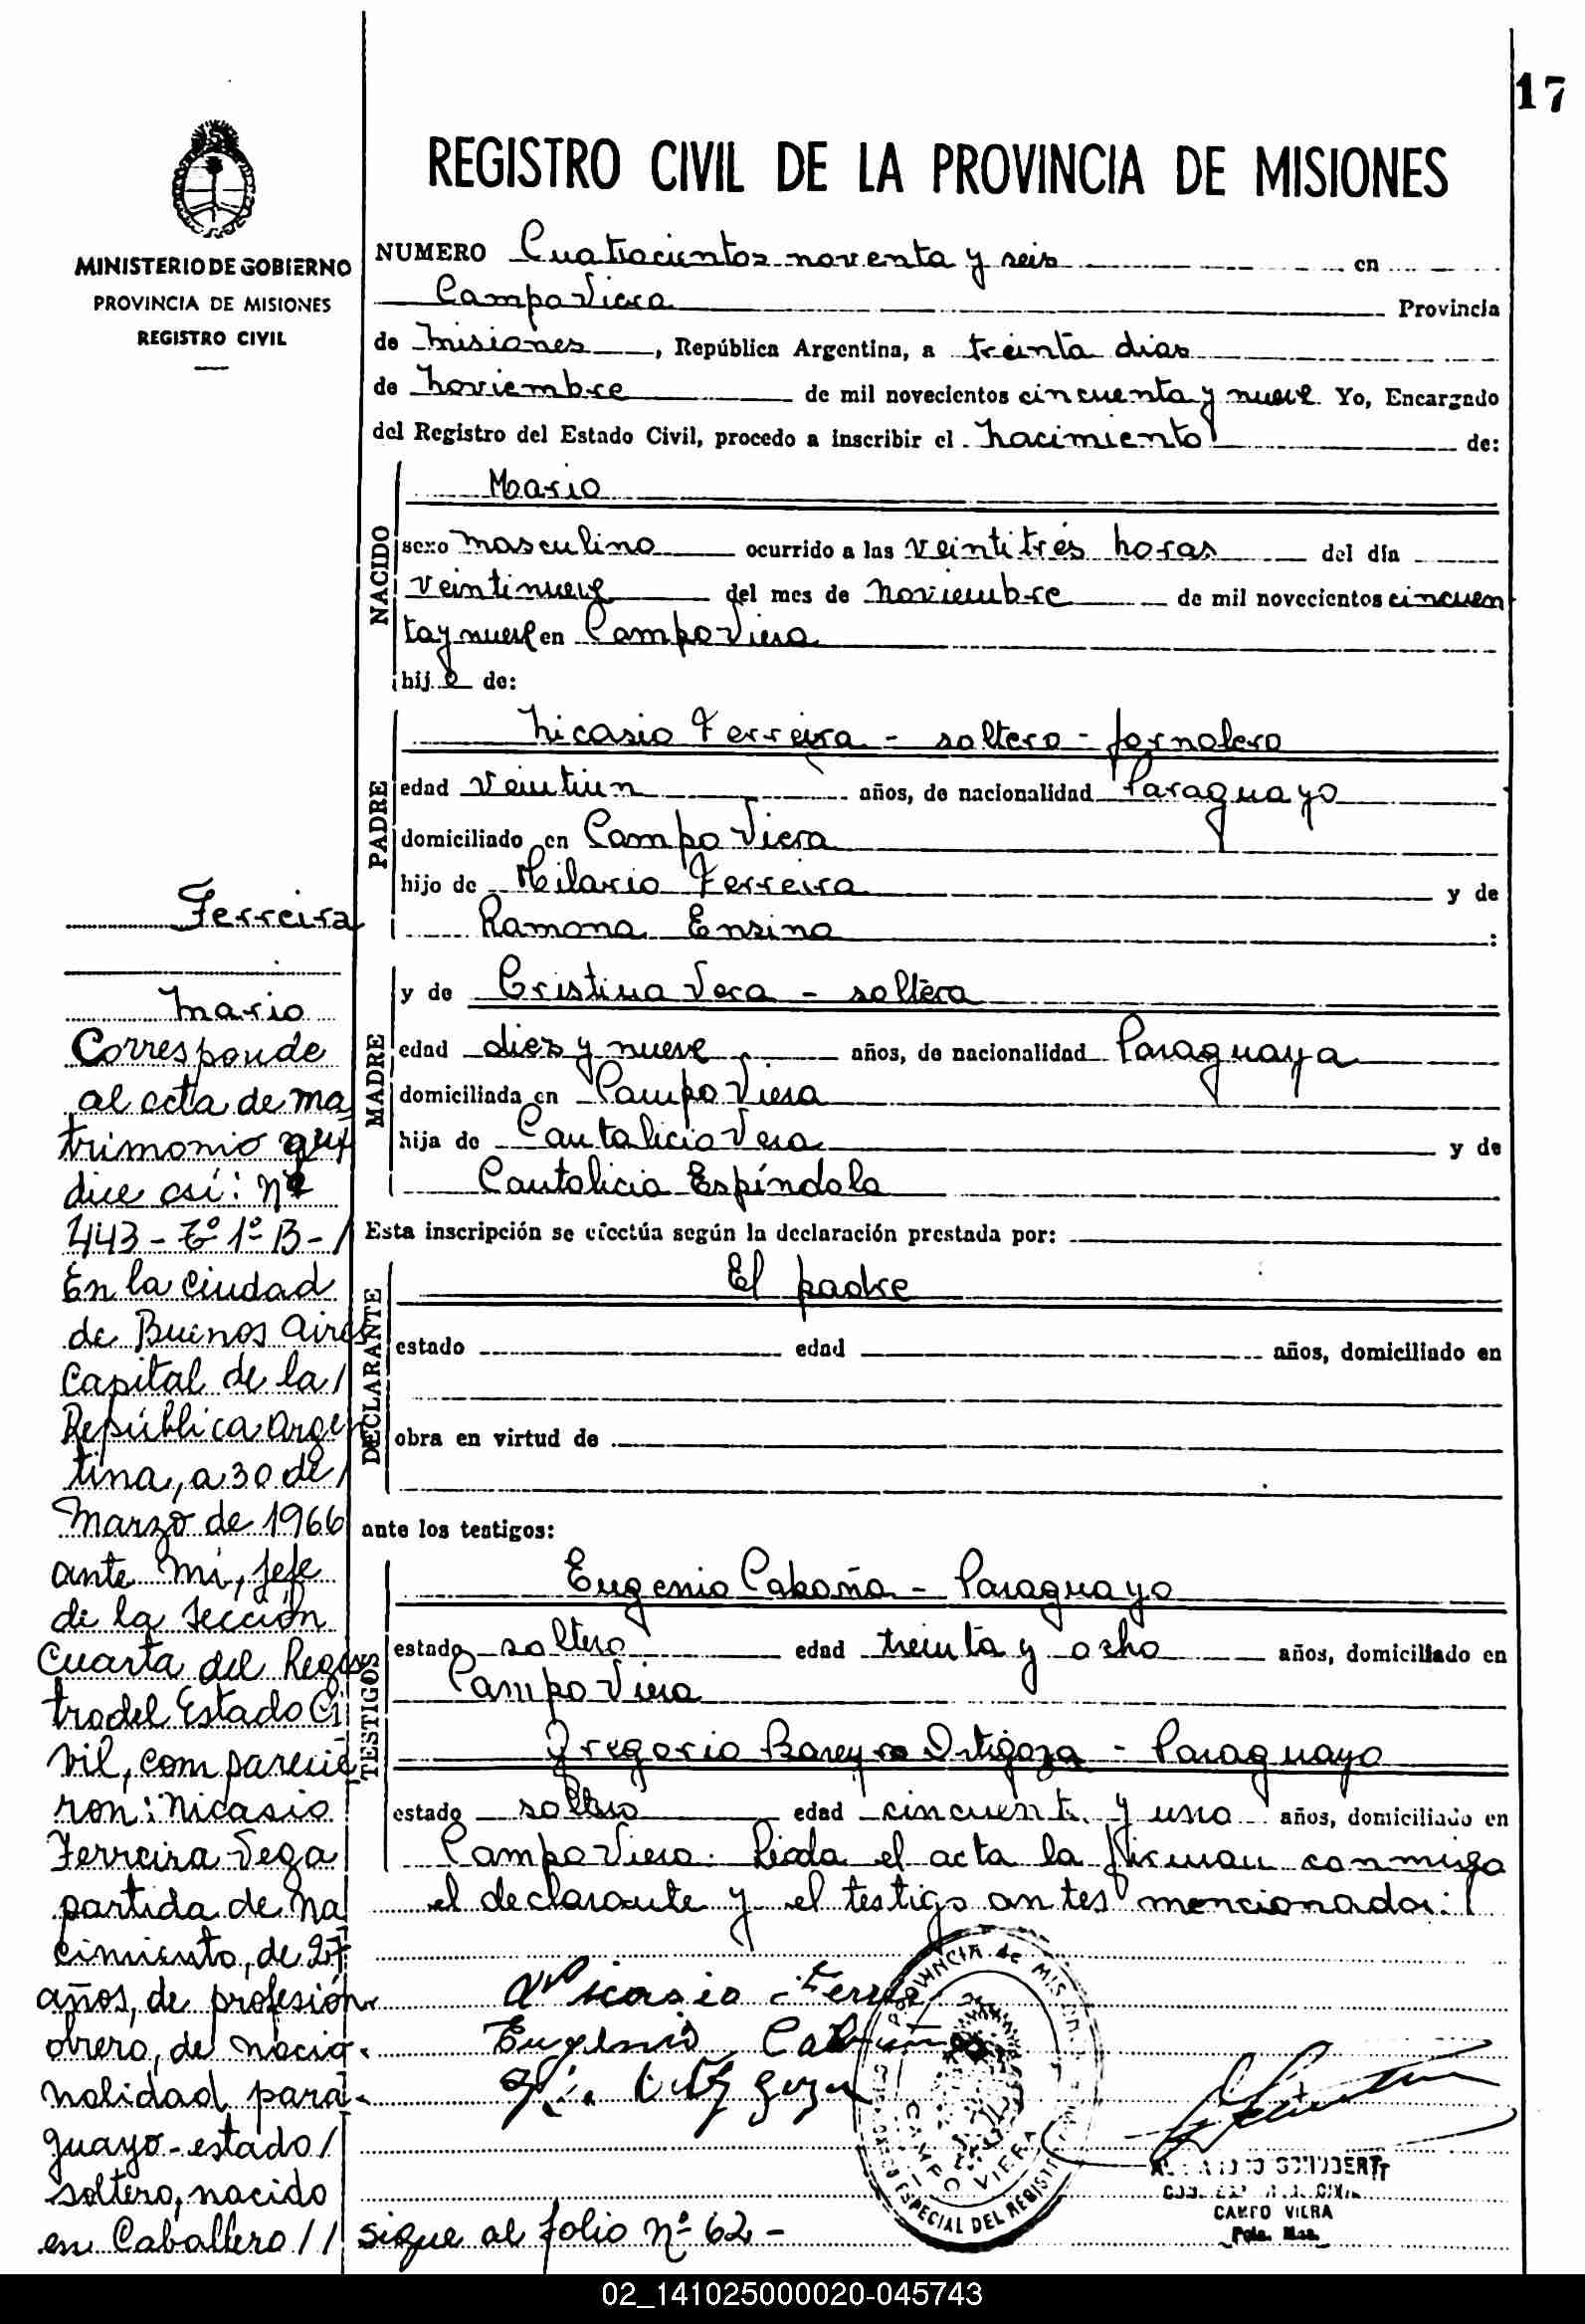 17
REGISTRO CIVIL DE LA PROVINCIA DE MISIONES
MINISTERIO DE GOBIERNO
PROVINCIA DE MISIONES
REGISTRO CIVIL
NUMERO Cuatrocientos noventa y seis en
Campo Viera Provincia
de Misiones, República Argentina, a treinta dias
de noviembre de mil novecientos cincuenta y nueve Yo, Encargado
del Registro del Estado Civil, procedo a inscribir el nacimiento de:
NACIDO
Mario
sexo masculino ocurrido a las veintitrés horas del día
veintinueve del mes de noviembre de mil novecientos cincuen
ta y nueve en Campo Viera
hijo de:
PADRE
Nicasio Ferreira - soltero - jornalero
edad veintiun años, de nacionalidad Paraguayo
domiciliado en Campo Viera
hijo de Hilario Ferreira y de
Ramona Ensina :
MADRE
y de Cristina Vera - soltera
edad diez y nueve años, de nacionalidad Paraguaya
domiciliada en Campo Viera
hija de Cantalicio Vera y de
Cantalicia Espíndola
Esta inscripción se efectúa según la declaración prestada por:
DECLARANTE
El padre
estado edad años, domiciliado en
obra en virtud de
ante los testigos:
TESTIGOS
Eugenio Cabaña - Paraguayo
estado soltero edad treinta y ocho años, domiciliado en
Campo Viera
Gregorio Bareyro Ortigoza - Paraguayo
estado soltero edad cincuenta y uno años, domiciliado en
Campo Viera. Leída el acta la firman conmigo
el declarante y el testigo antes mencionados:
Nicasio Ferre
Eugenio Cabañas
PROVINCIA de MISIONES
CAMPO VIERA
ESPECIAL DEL REGISTRO
SCHUBERT
CAMPO VIERA
Pcia. Mns.
sigue al folio Nº 62 -
Ferreira
Mario
Corresponde
al acta de ma
trimonio que
dice así: Nº
443 - Tº 1º B - /
En la Ciudad
de Buenos Aires
Capital de la /
República Argen
tina, a 30 de /
Marzo de 1966
ante mi, jefe
de la Sección
Cuarta del Regis
tro del Estado Ci
vil, comparecie
ron: Nicasio
Ferreira Vega
partida de na
cimiento, de 27
años, de profesión
obrero, de nacio
nalidad para
guayo - estado /
soltero, nacido
en Caballero //
02_141025000020-045743